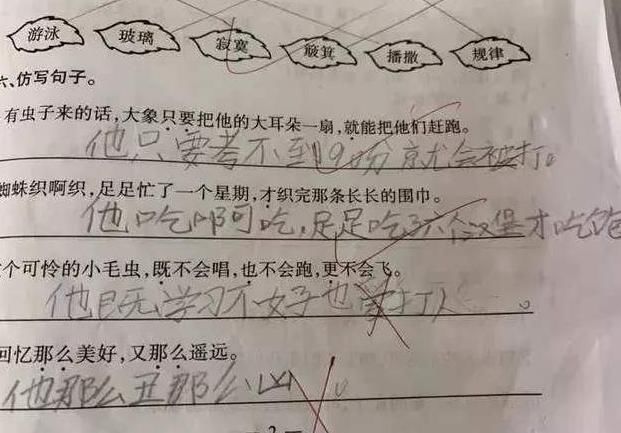 游泳 玻璃 寂寞 簸箕 播撒 规律
六、仿写句子。
有虫子来的话,大象只要把他的大耳朵一扇,就能把他们赶跑。
他只要考不到19分就会被打。
蜘蛛织啊织,足足忙了一个星期,才织完那条长长的围巾。
他吃啊吃,足足吃了六个汉堡才吃饱
个可怜的小毛虫,既不会唱,也不会跑,更不会飞。
他既学习不好也打人。
回忆那么美好,又那么遥远。
他那么丑那么凶。
2